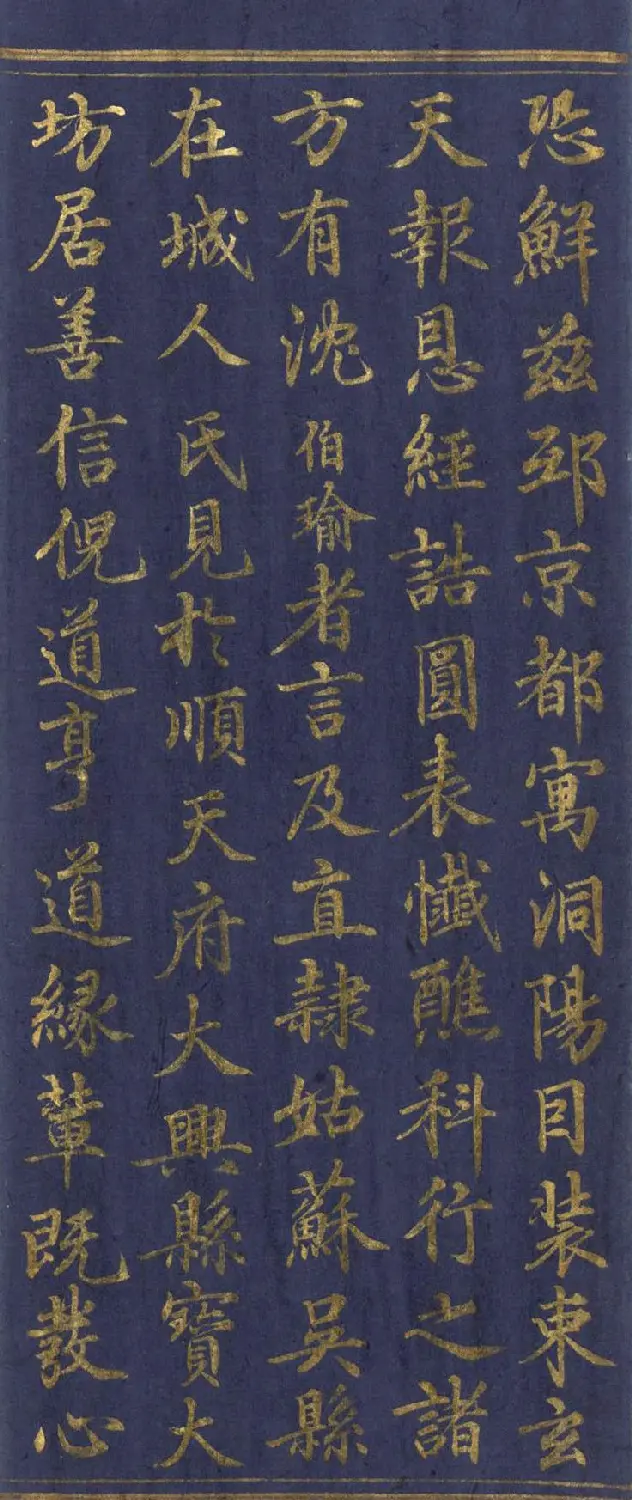 恐鮮兹邳京都寓洞陽目装束玄
天報恩經誥圓表懺醮科行之諸
方有沈伯瑜者言及直隸姑蘇吳縣
在城人氏見於順天府大興縣寶大
坊居善信倪道亨道緣輩既發心